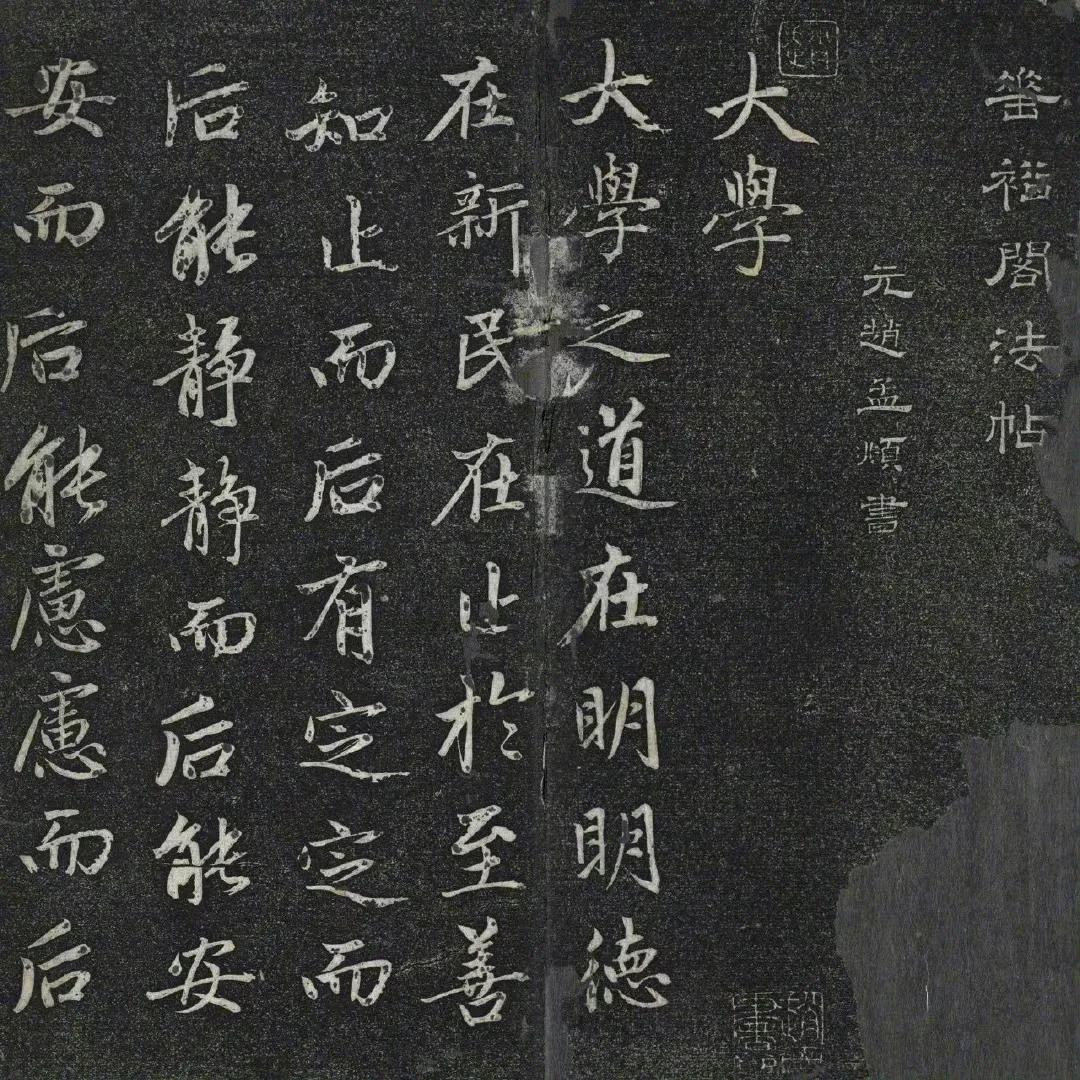 閣法帖
元趙孟頫書
大學
大學之道在明明德
在新民在止於至善
知止而后有定定而
后能静静而后能安
安而后能慮慮而后